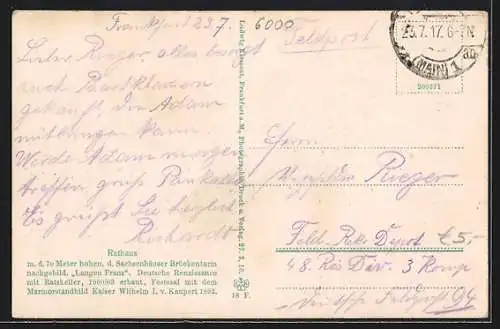 Frankfurt 23.7.
6000
Lieber Rieger, alles besorgt
auch
gekauft, den Adam
mitbringen kann.
Werde Adam morgen
treffen
Es grüßt Sie herzlich
Reichardt
Rathaus
m. d. 70 Meter hohen, d. Sachsenhäuser Brückenturm
nachgebild. „Langen Franz“. Deutsche Renaissance
mit Ratskeller, 1900/03 erbaut, Festsaal mit dem
Marmorstandbild Kaiser Wilhelm I. v. Kaupert 1892.
Ludwig Klement, Frankfurt a. M., Photographie, Druck u. Verlag.
18 F.
Feldpost
23.7.17. 6-7N
(MAIN) 1
200271
Herrn
Rieger
Feld Rekr. Depot
€5,-
48. Res Div. 3 Komp
Deutsche Feldpost 94